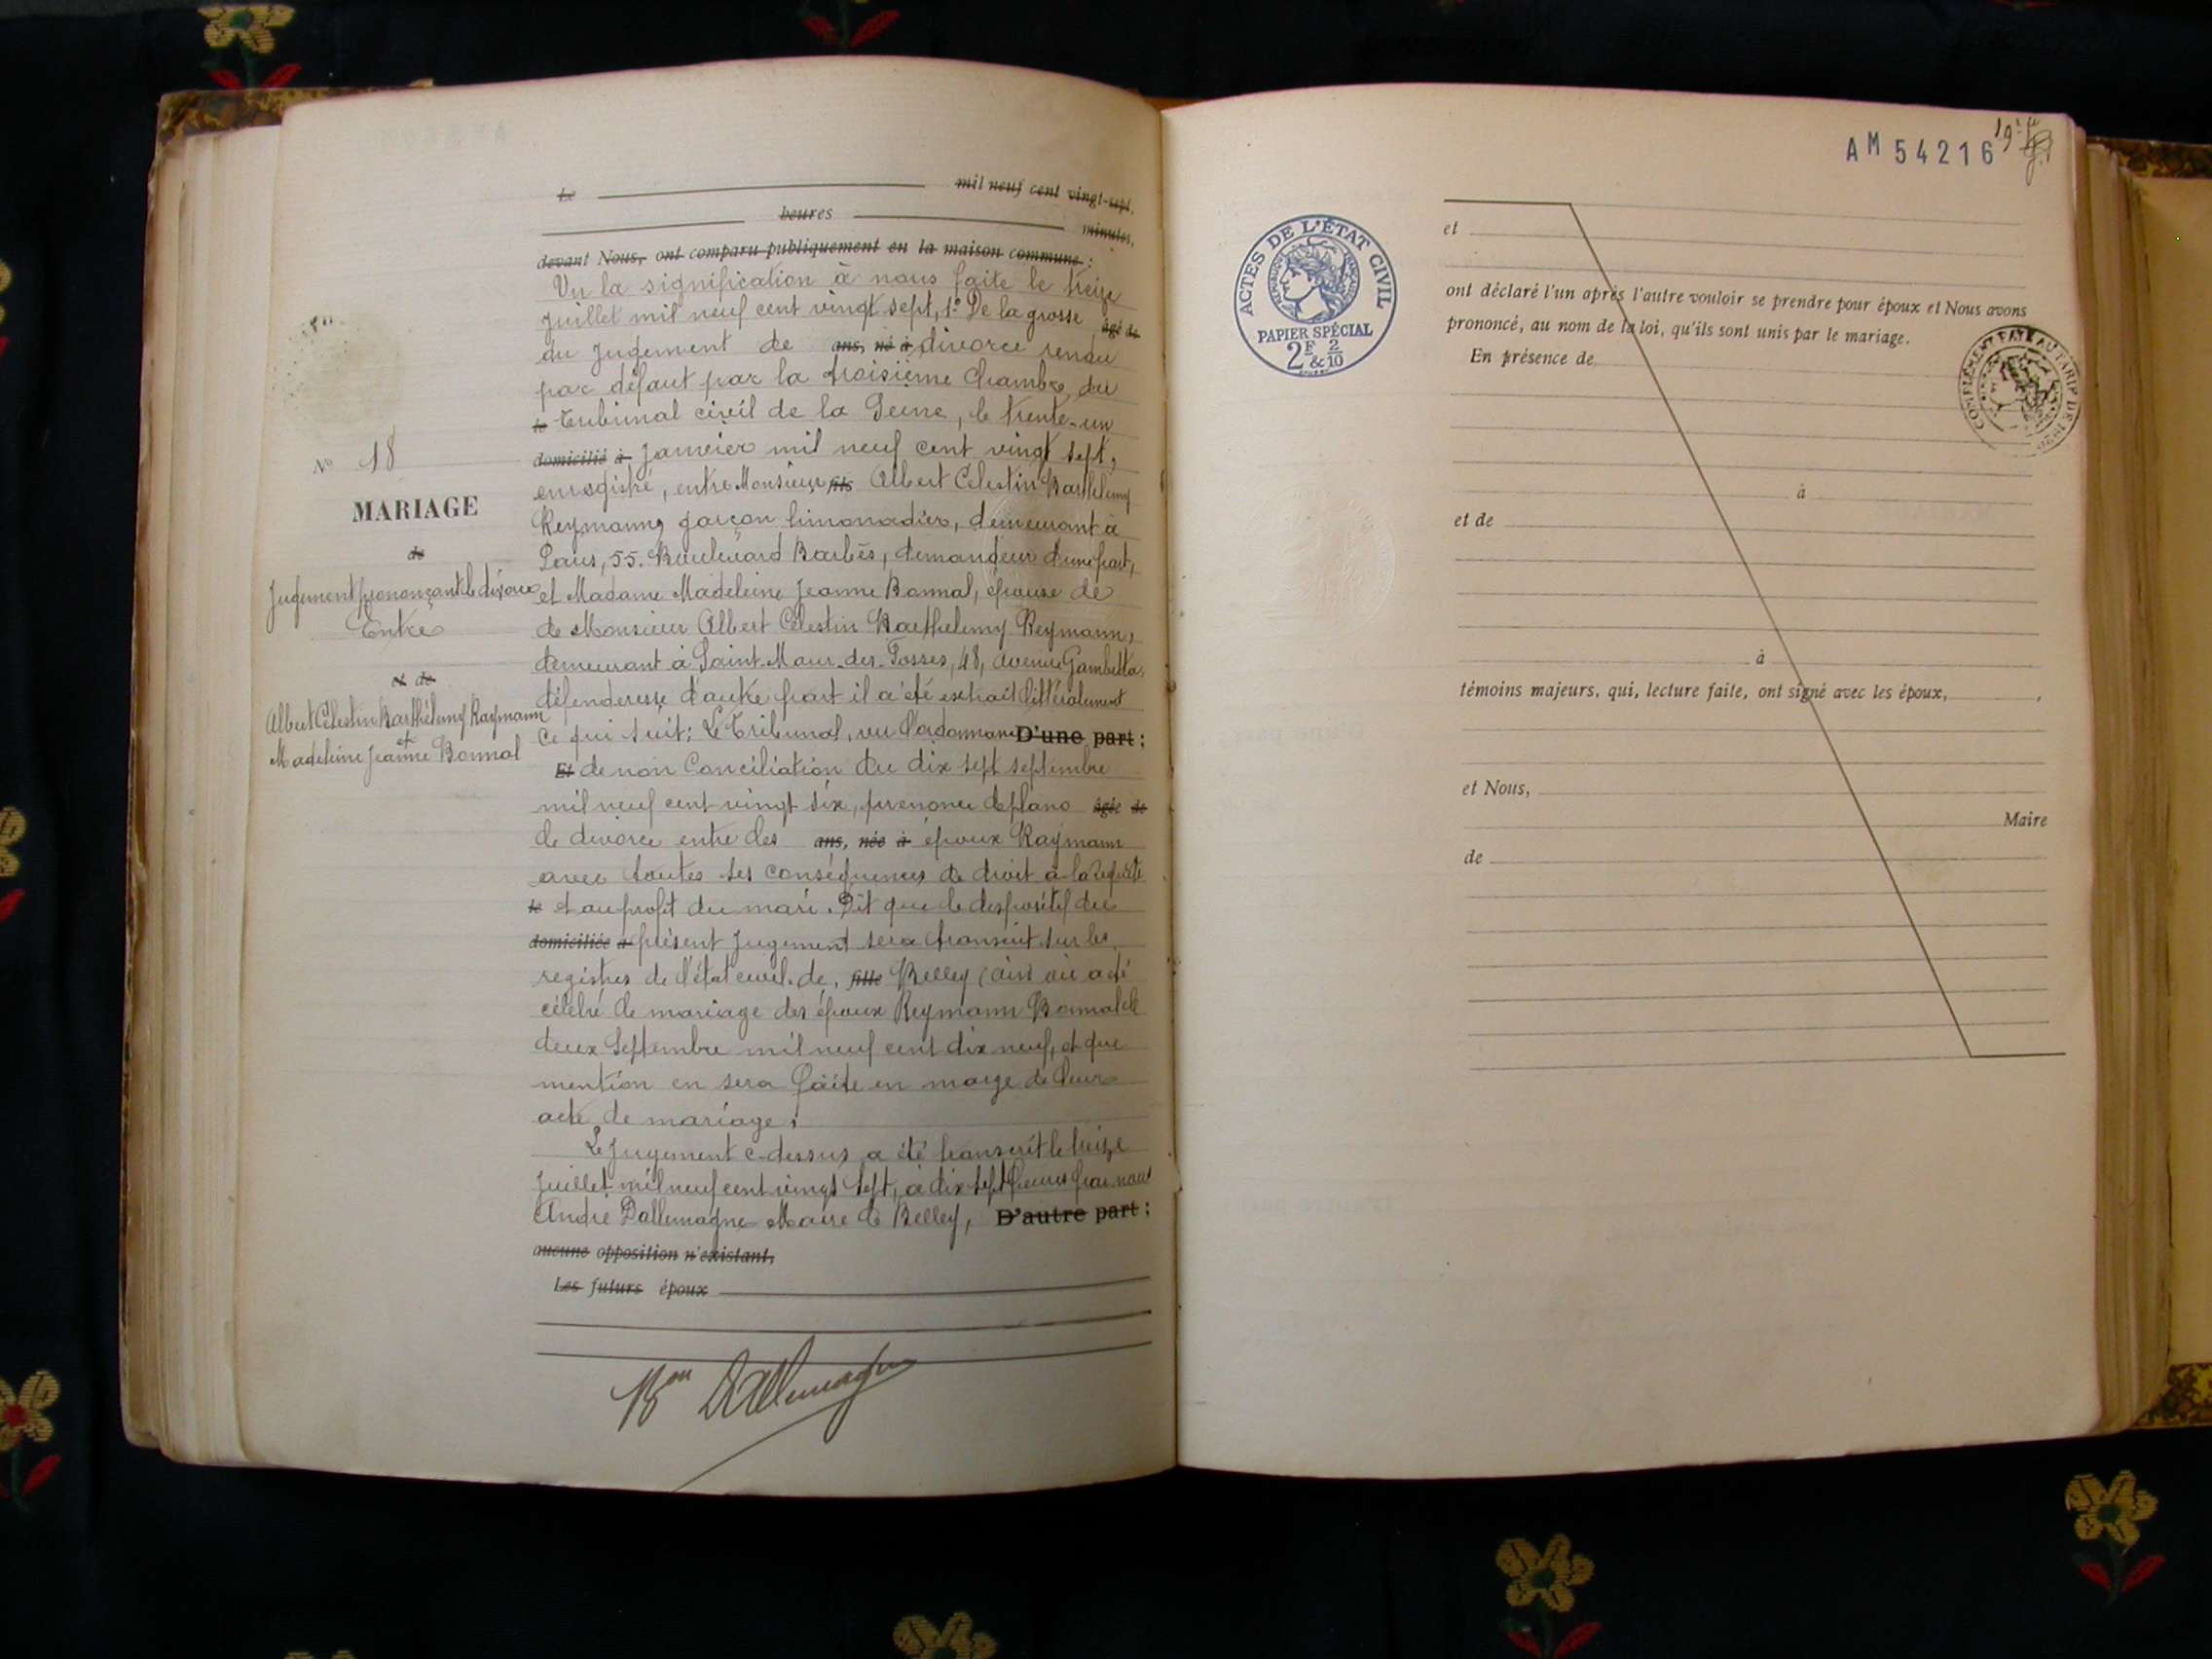 Le mil neuf cent vingt-sept,
heures minutes,
devant Nous, ont comparu publiquement en la maison commune :
Vu la signification à nous faite le treize
juillet mil neuf cent vingt sept, 1° De la grosse âgé de
du Jugement de ans, né à divorce rendu
par défaut par la troisième Chambre du
le Tribunal civil de la Seine, le trente-un
domicilié à janvier mil neuf cent vingt sept,
enregistré, entre Monsieur fils Albert Célestin Barthélemy
Reymann, garçon limonadier, demeurant à
Paris, 55. Boulevard Barbès, demandeur d'une part,
et Madame Madeleine Jeanne Bonnal, épouse de
de Monsieur Albert Célestin Barthelemy Reymann,
demeurant à Saint-Maur-des-Fossés, 48, avenue Gambetta,
défenderesse d'autre part il a été extrait littéralement
ce qui suit: Le Tribunal, vu l'ordonnance D'une part ;
Et de non Conciliation du dix sept septembre
mil neuf cent vingt six, prononce de plano âgée de
le divorce entre les ans, née à époux Raymann
avec toutes ses conséquences de droit à la requête
le et au profit du mari. Dit que le dispositif du
domiciliée à présent Jugement sera transcrit sur les
registres de l'état civil de, fille Belley (Ain) où a été
célébré le mariage des époux Reymann Bonnal le
deux Septembre mil neuf cent dix neuf, et que
mention en sera faite en marge de leur
acte de mariage.
Le Jugement c-dessus a été transcrit le treize
Juillet mil neuf cent vingt sept, à dix sept heures par nous
André Dallemagne Maire de Belley, D'autre part ;
aucune opposition n'existant,
Les futurs époux
Bon Dallemagne
N° 18
MARIAGE
de
Jugement prononçant le divorce
Entre
et de
Albert Célestin Barthélemy Raymann
et
Madeleine Jeanne Bonnal
AM 54216
ACTES DE L'ÉTAT CIVIL
RÉPUBLIQUE FRANÇAISE
PAPIER SPÉCIAL
2F & 2/10
et
ont déclaré l'un après l'autre vouloir se prendre pour époux et Nous avons
prononcé, au nom de la loi, qu'ils sont unis par le mariage.
En présence de
COMPLÉMENT PAYÉ AU TARIF DE
à
et de
à
témoins majeurs, qui, lecture faite, ont signé avec les époux, ,
et Nous,
Maire
de